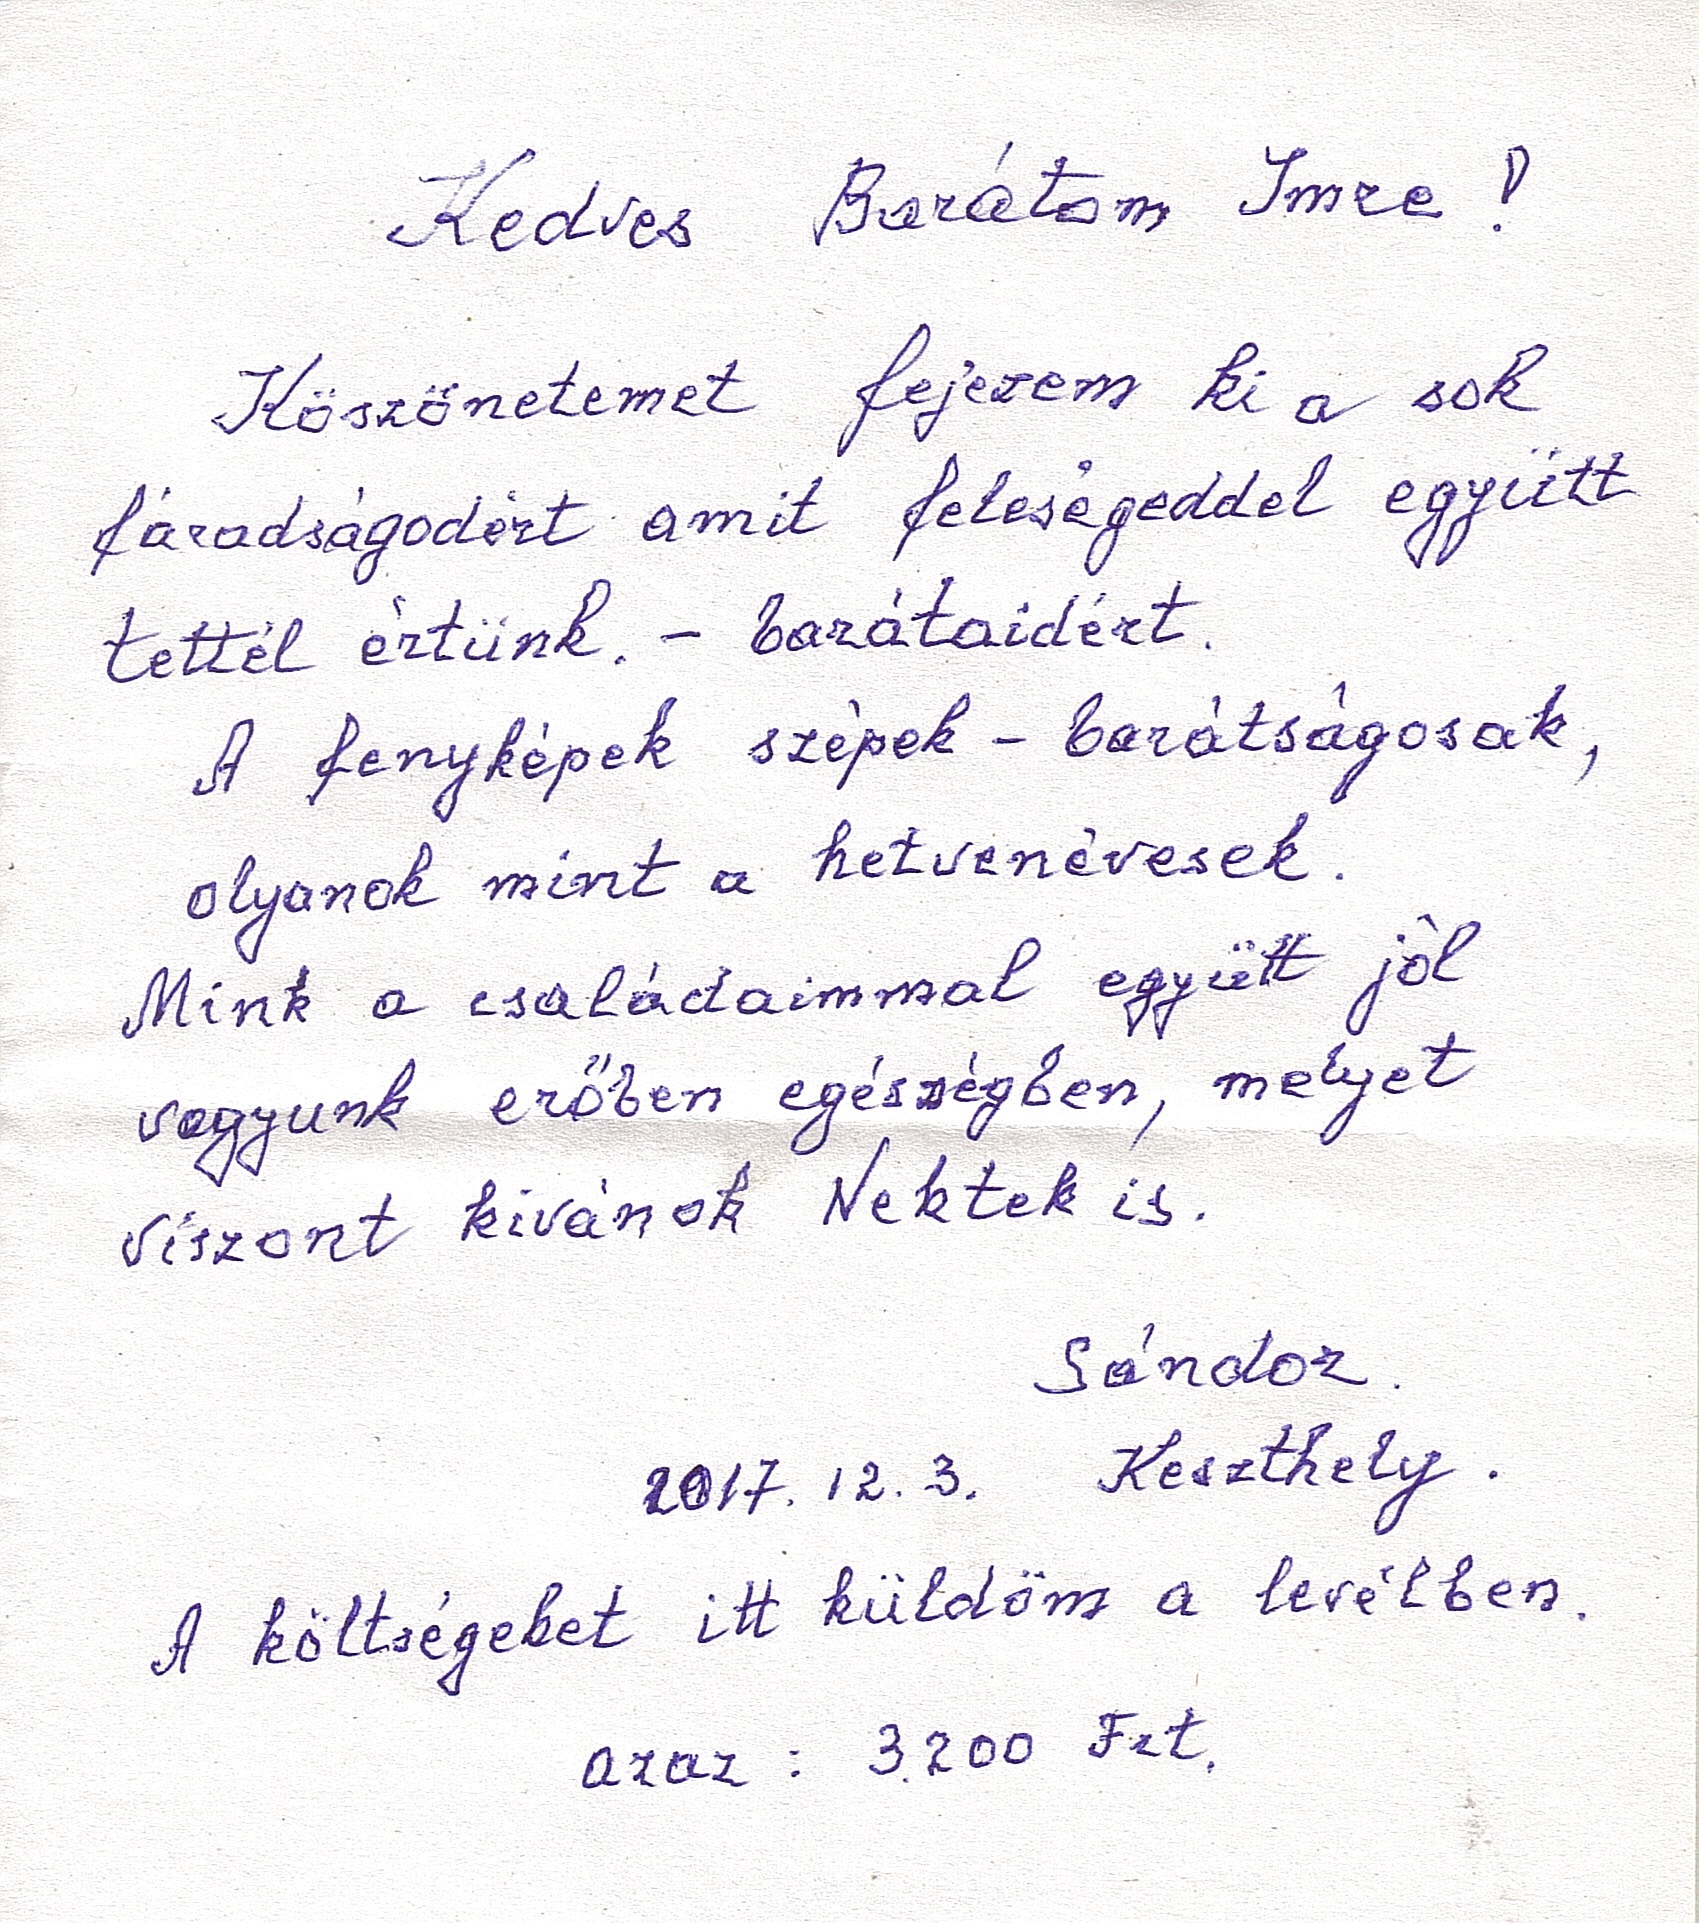 Kedves Barátom Imre!
Köszönetemet fejezem ki a sok
fáradságodért amit feleségeddel együtt
tettél értünk. - barátaidért.
A fenyképek szépek - barátságosak,
olyanok mint a hetvenévesek.
Mink a családaimmal együtt jól
vagyunk erőben egészségben, melyet
viszont kivánok Nektek is.
Sándor.
2017. 12. 3. Keszthely.
A költségeket itt küldöm a levélben.
azaz: 3.200 Frt.